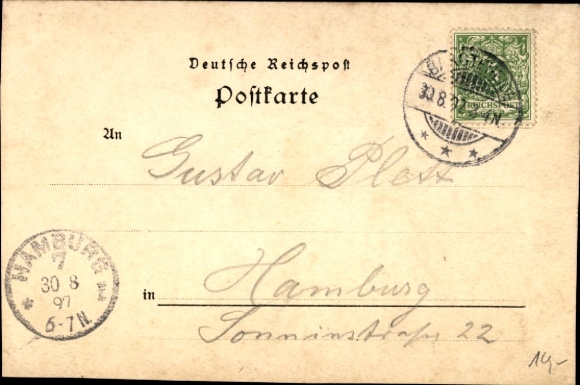 Deutsche Reichspost
Postkarte
30.8.97
REICHSPOST
An
Gustav Plett
HAMBURG
7
30 8
97
6-7N.
in Hamburg
Sonninstraße 22
14,-